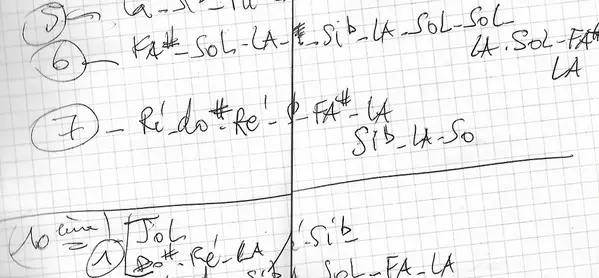 5
6 - FA# - SOL - LA - - Sib - LA - SOL - SOL
LA - SOL - FA#
LA
7 - Ré - do# - Ré - FA# - LA
Sib - LA - SO
(10
1 SOL Sib
DO# - Ré - LA
Sib SOL - FA - LA